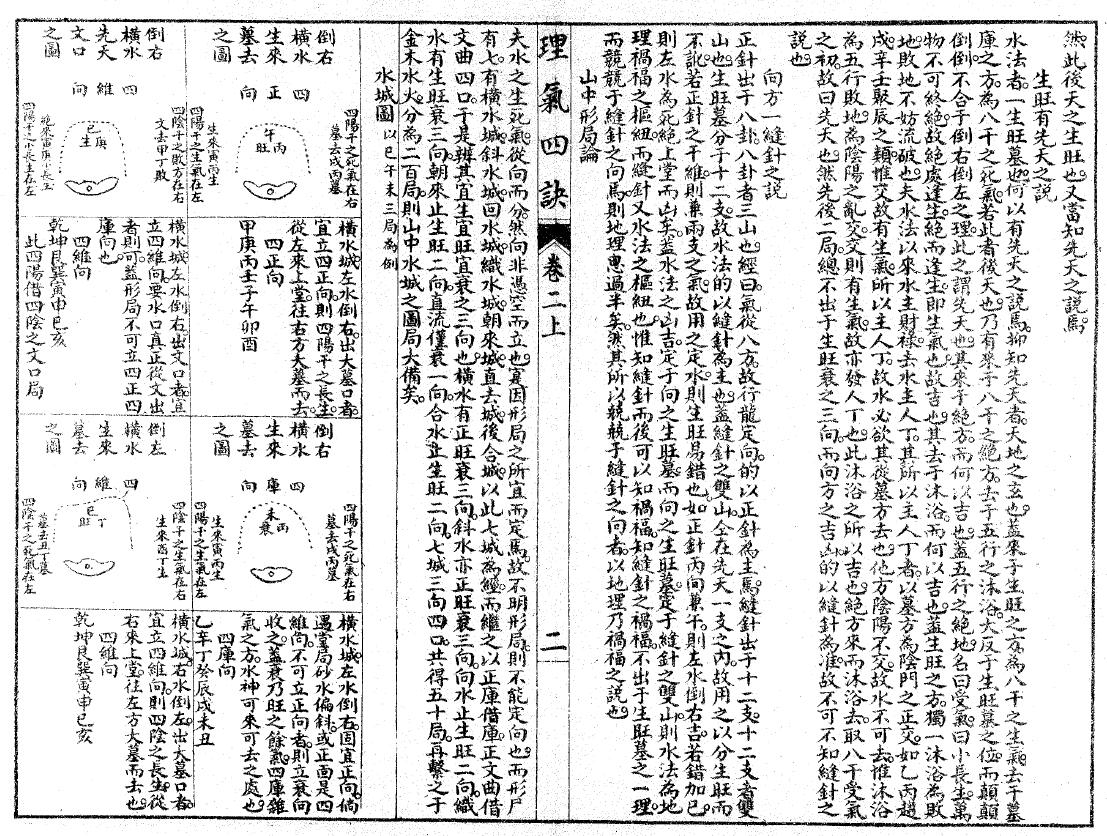 然此後天之生旺也又當知先天之說焉
生旺有先天之說
水法者一生旺墓也何以有先天之說焉抑知先天者天地之玄也蓋來于生旺之方為八干之生氣去于墓
庫之方為八干之死氣若此者後天也乃有來于八干之絕方去于五行之沐浴大反于生旺墓之位而顛顛
倒倒不合于倒右倒左之理此之謂先天也其來于絕方而何以吉也蓋五行之絕地名曰受氣曰小長生萬
物不可終絕故絕處逢生絕而逢生即生氣也故吉也其去于沐浴而何以吉也蓋生旺之方獨一沐浴為敗
地敗地不妨流破也夫水法以來水主財祿去水主人丁其所以主人丁者以墓方為陰門之正交如乙丙趨
戌辛壬聚辰之類惟交故有生氣所以主人丁故水必欲其從墓方去也他方陰陽不交故水不可去惟沐浴
為五行敗地為陰陽之亂交交則有生氣故亦發人丁也此沐浴之所以吉也絕方來而沐浴去取八干受氣
之初故曰先天也然先後二局總不出于生旺衰之三向而向方之吉凶的以縫針為准故不可不知縫針之
說也
向方一縫針之說
正針出于八卦八卦者三山也經曰氣從八方故行龍定向的以正針為主焉縫針出于十二支十二支者雙
山也生旺墓分于十二支故水法的以縫針為主也蓋縫針之雙山仝在先天一支之內故用之以分生旺而
不訛若正針之干維則兼兩支之氣故用之定水則生旺易錯也如正針丙向兼午則左水倒右吉若錯加巳
則左水為死絕上堂而凶矣蓋水法之凶吉定于向之生旺墓而向之生旺墓定于縫針之雙山則水法為地
理禍福之樞紐而縫針又水法之樞紐也惟知縫針而後可以知禍福知縫針之禍福不出于生旺墓之一理
而競競于縫針之向焉則地理思過半矣然其所以競競于縫針之向者以地理乃禍福之說也
山中形局論
理氣四訣 卷二上 二
夫水之生死氣從向而分然向非憑空而立也寔因形局之所宜而定焉故不明形局則不能定向也而形尸
有七有橫水城斜水城回水城織水城朝來城直去城後合城以此七城為經而繼之以正庫借庫正文曲借
文曲四口于是辨其宜生宜旺宜衰之三向也橫水有正旺衰三向斜水亦正旺衰三向向水止生旺二向織
水有生旺衰三向朝來止生旺二向直流僅衰一向合水止生旺二向七城三向四口共得五十局再繫之于
金木水火分為二百局則山中水城之圖局大備矣
水城圖 以巳午未三局為例
倒右
橫水
生來
墓去
之圖
四正向
四陽干之死氣在右
墓去戌丙墓
午丙
旺
生來寅丙生
四陽干之生氣在左
橫水城左水倒右出大墓口者
宜立四正向則四陽干之長生
從左來上堂往右方大墓而去
四正向
甲庚丙壬子午卯酉
倒右
橫水
先天
文口
之圖
四維向
四陰干之敗方在右
文去甲丁敗
巳庚
生
四陽干之小長生在左
橫水城左水倒右出文口者宜
立四維向要水口真正從文出
者則可蓋形局不可立四正四
庫向也
四維向
乾坤艮巽寅申巳亥
此四陽借四陰之文口局
倒右
橫水
生來
墓去
之圖
四庫向
四陽干之死氣在右
墓去戌丙墓
未丙
衰
生來寅丙生
四陽干之生氣在左
橫水城左水倒右固宜正向倘
遇堂局砂水偏斜或正面是四
維向不可立正向者則立衰向
收之蓋衰乃旺之餘氣四庫雖
氣之方水神可來可去之處也
四庫向
乙辛丁癸辰戌未丑
倒左
橫水
生來
墓去
之圖
四維向
四陰干之生氣在右
生來酉丁生
巳丁
旺
墓去丑丁墓
四陰干之死氣在左
橫水城右水倒左出大墓口者
宜立四維向則四陰之長生從
右來上堂往左方大墓而去也
四維向
乾坤艮巽寅申巳亥